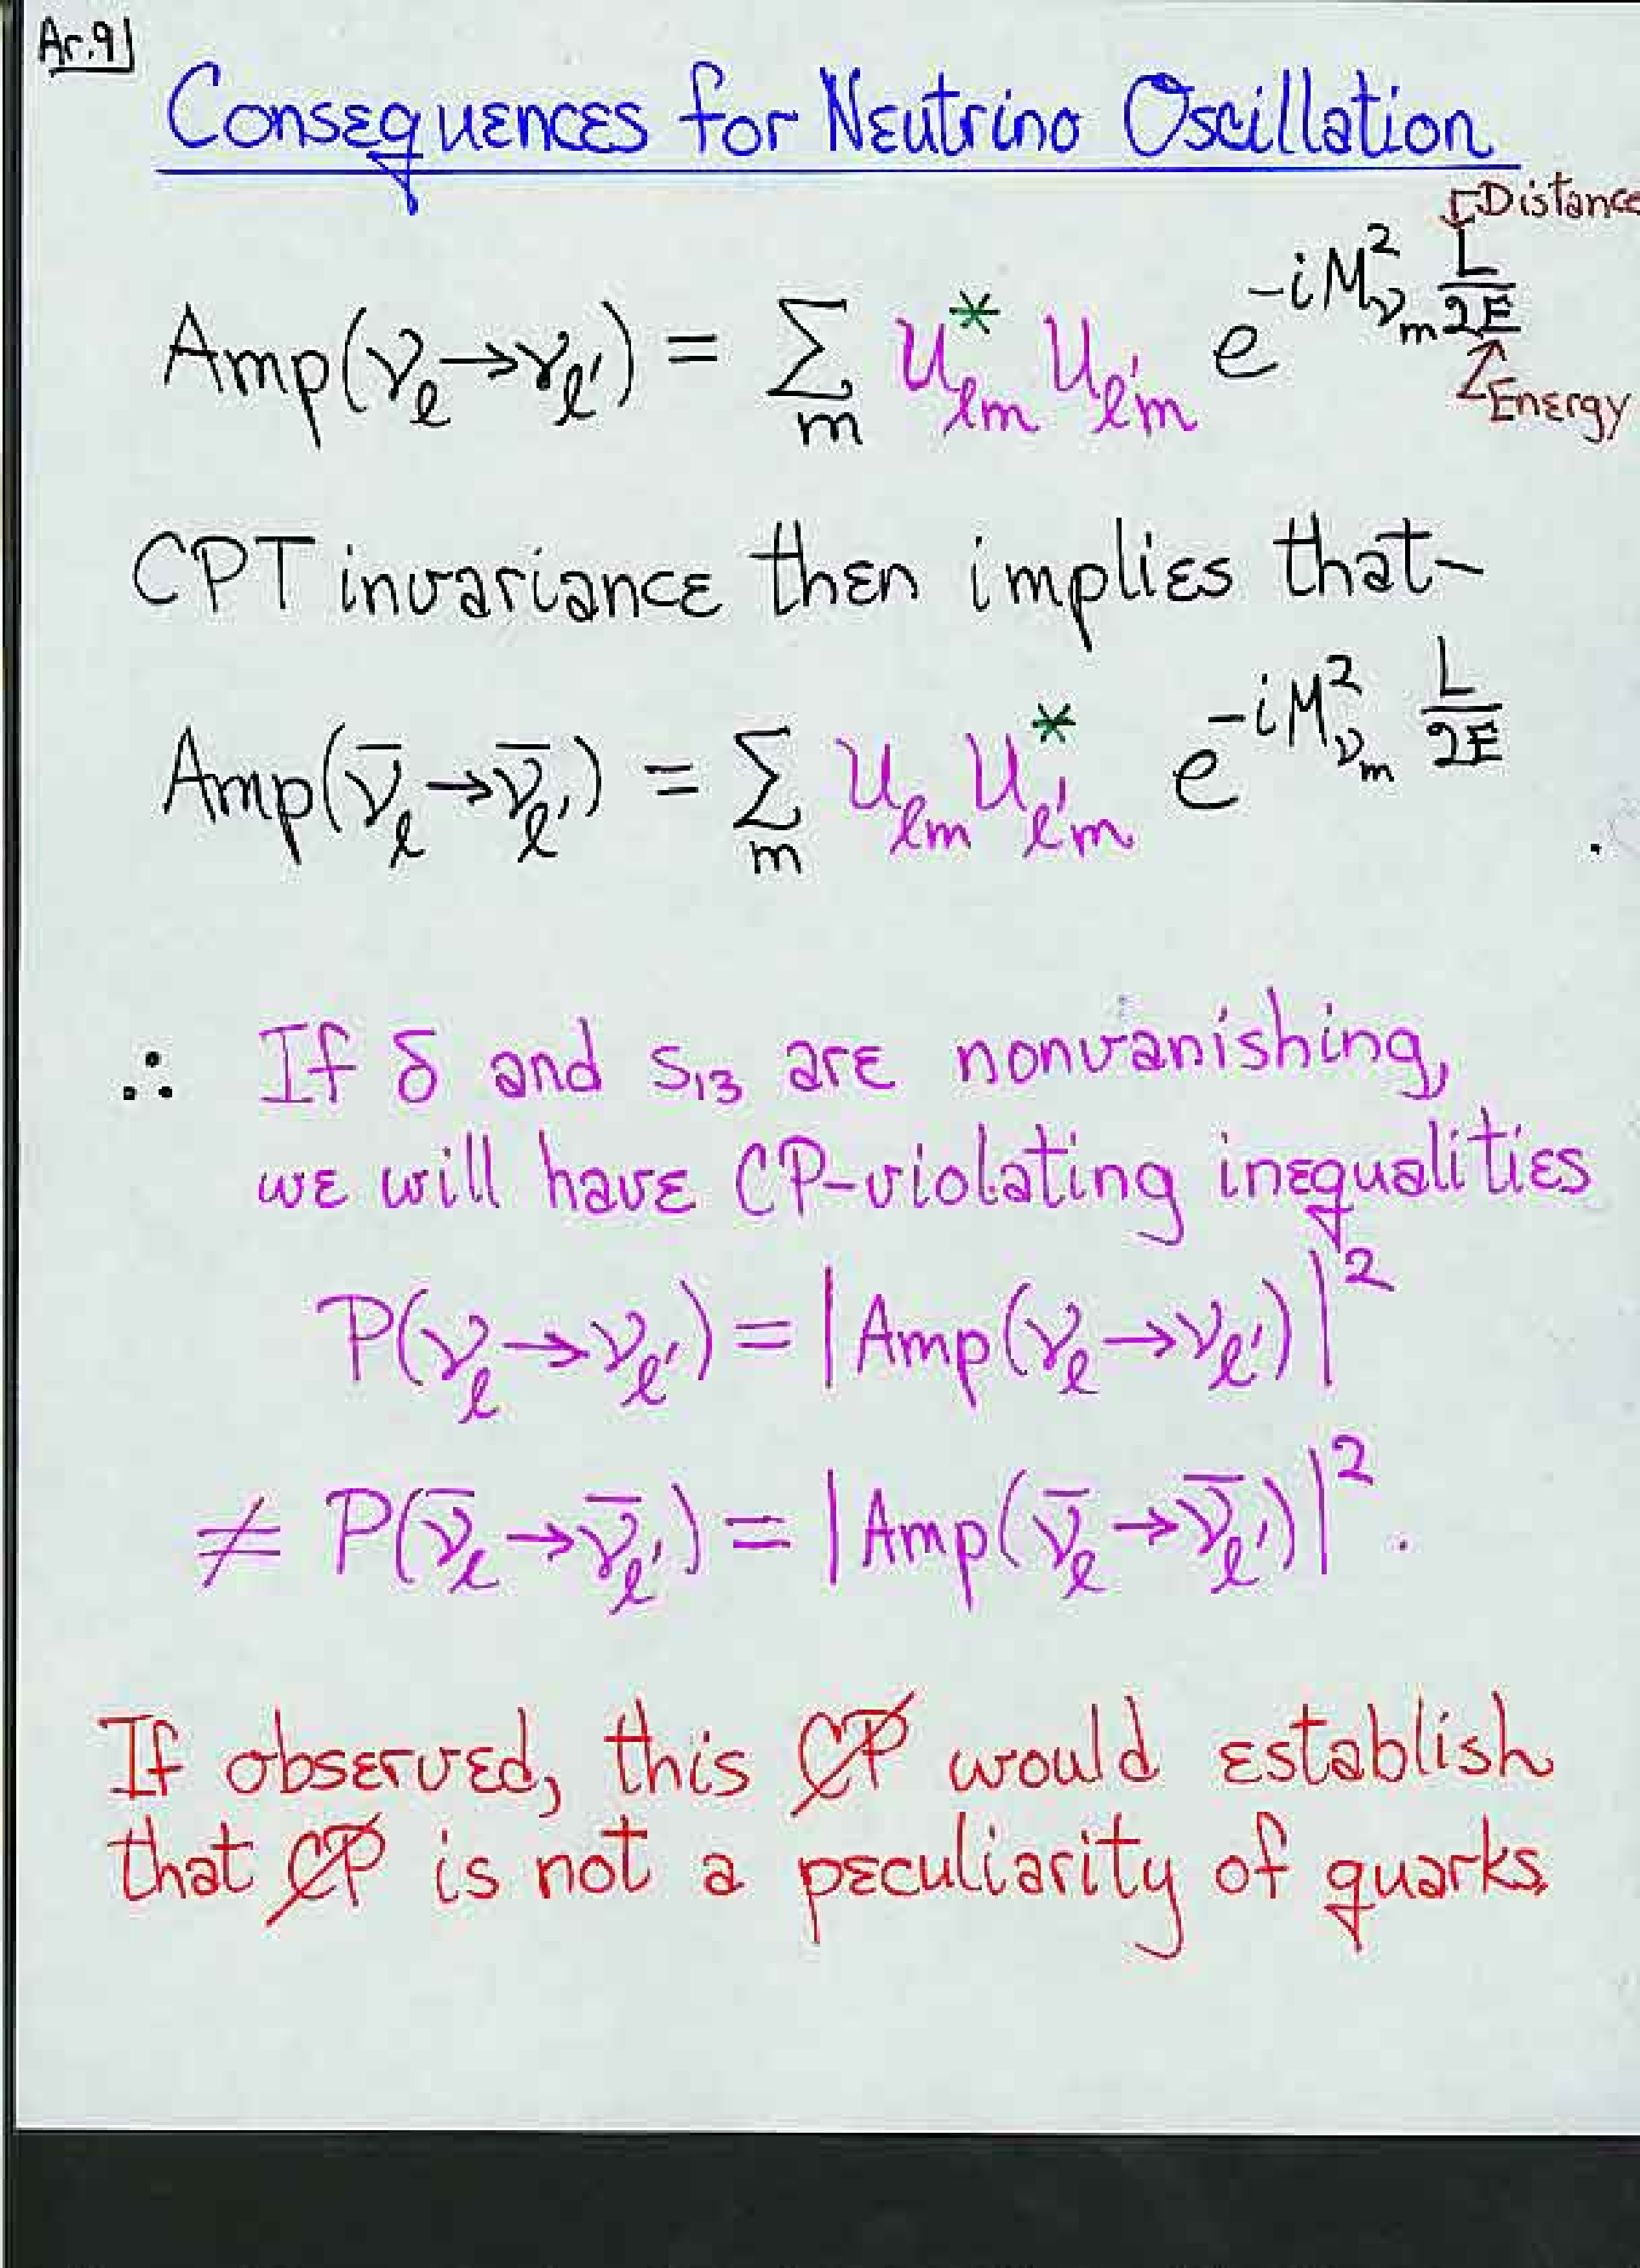 Ar.9
Consequences for Neutrino Oscillation
Distance
Amp(ν_ℓ→ν_ℓ') = Σ_m U*_ℓm U_ℓ'm e^{-iM²_{ν_m} L/2E}
Energy
CPT invariance then implies that–
Amp(ν̄_ℓ→ν̄_ℓ') = Σ_m U_ℓm U*_ℓ'm e^{-iM²_{ν_m} L/2E} .
∴ If δ and s₁₃ are nonvanishing,
we will have CP-violating inequalities
P(ν_ℓ→ν_ℓ') = |Amp(ν_ℓ→ν_ℓ')|²
≠ P(ν̄_ℓ→ν̄_ℓ') = |Amp(ν̄_ℓ→ν̄_ℓ')|² .
If observed, this C̸P̸ would establish
that C̸P̸ is not a peculiarity of quarks.